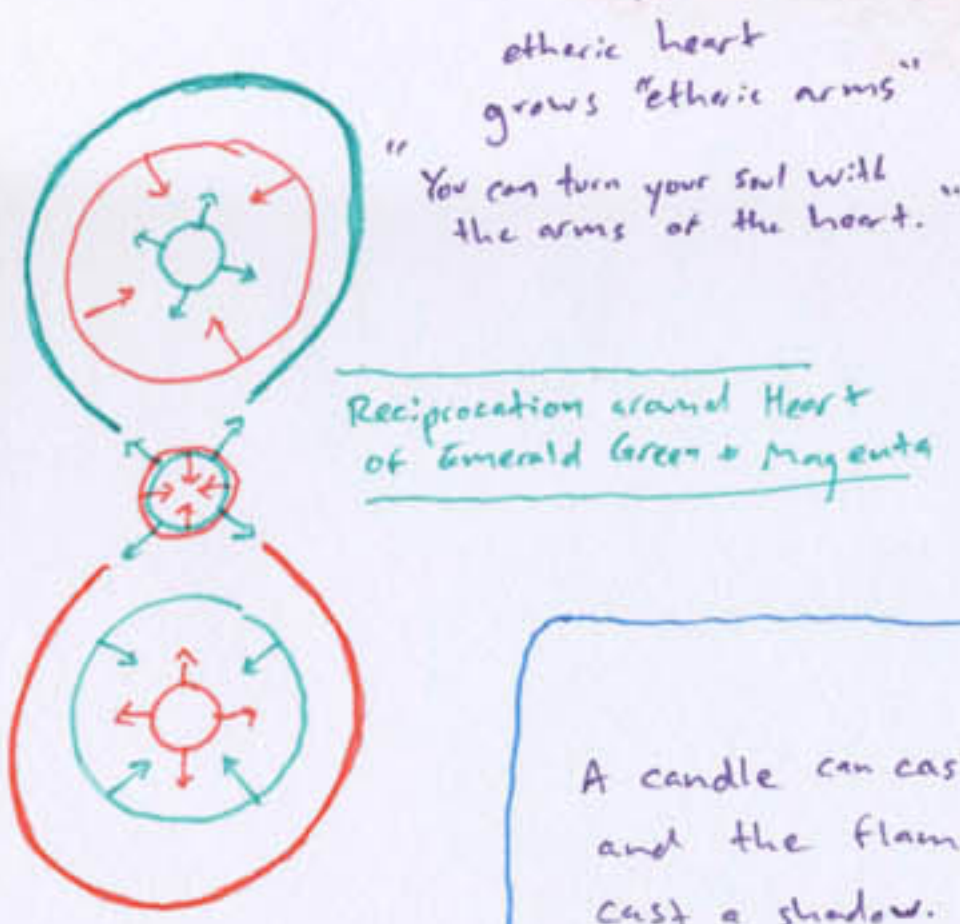 etheric heart
grows "etheric arms"
"You can turn your soul with
the arms of the heart."
Reciprocation around Heart
of Emerald Green + Magenta
A candle can cas
and the flam
cast a shadow.